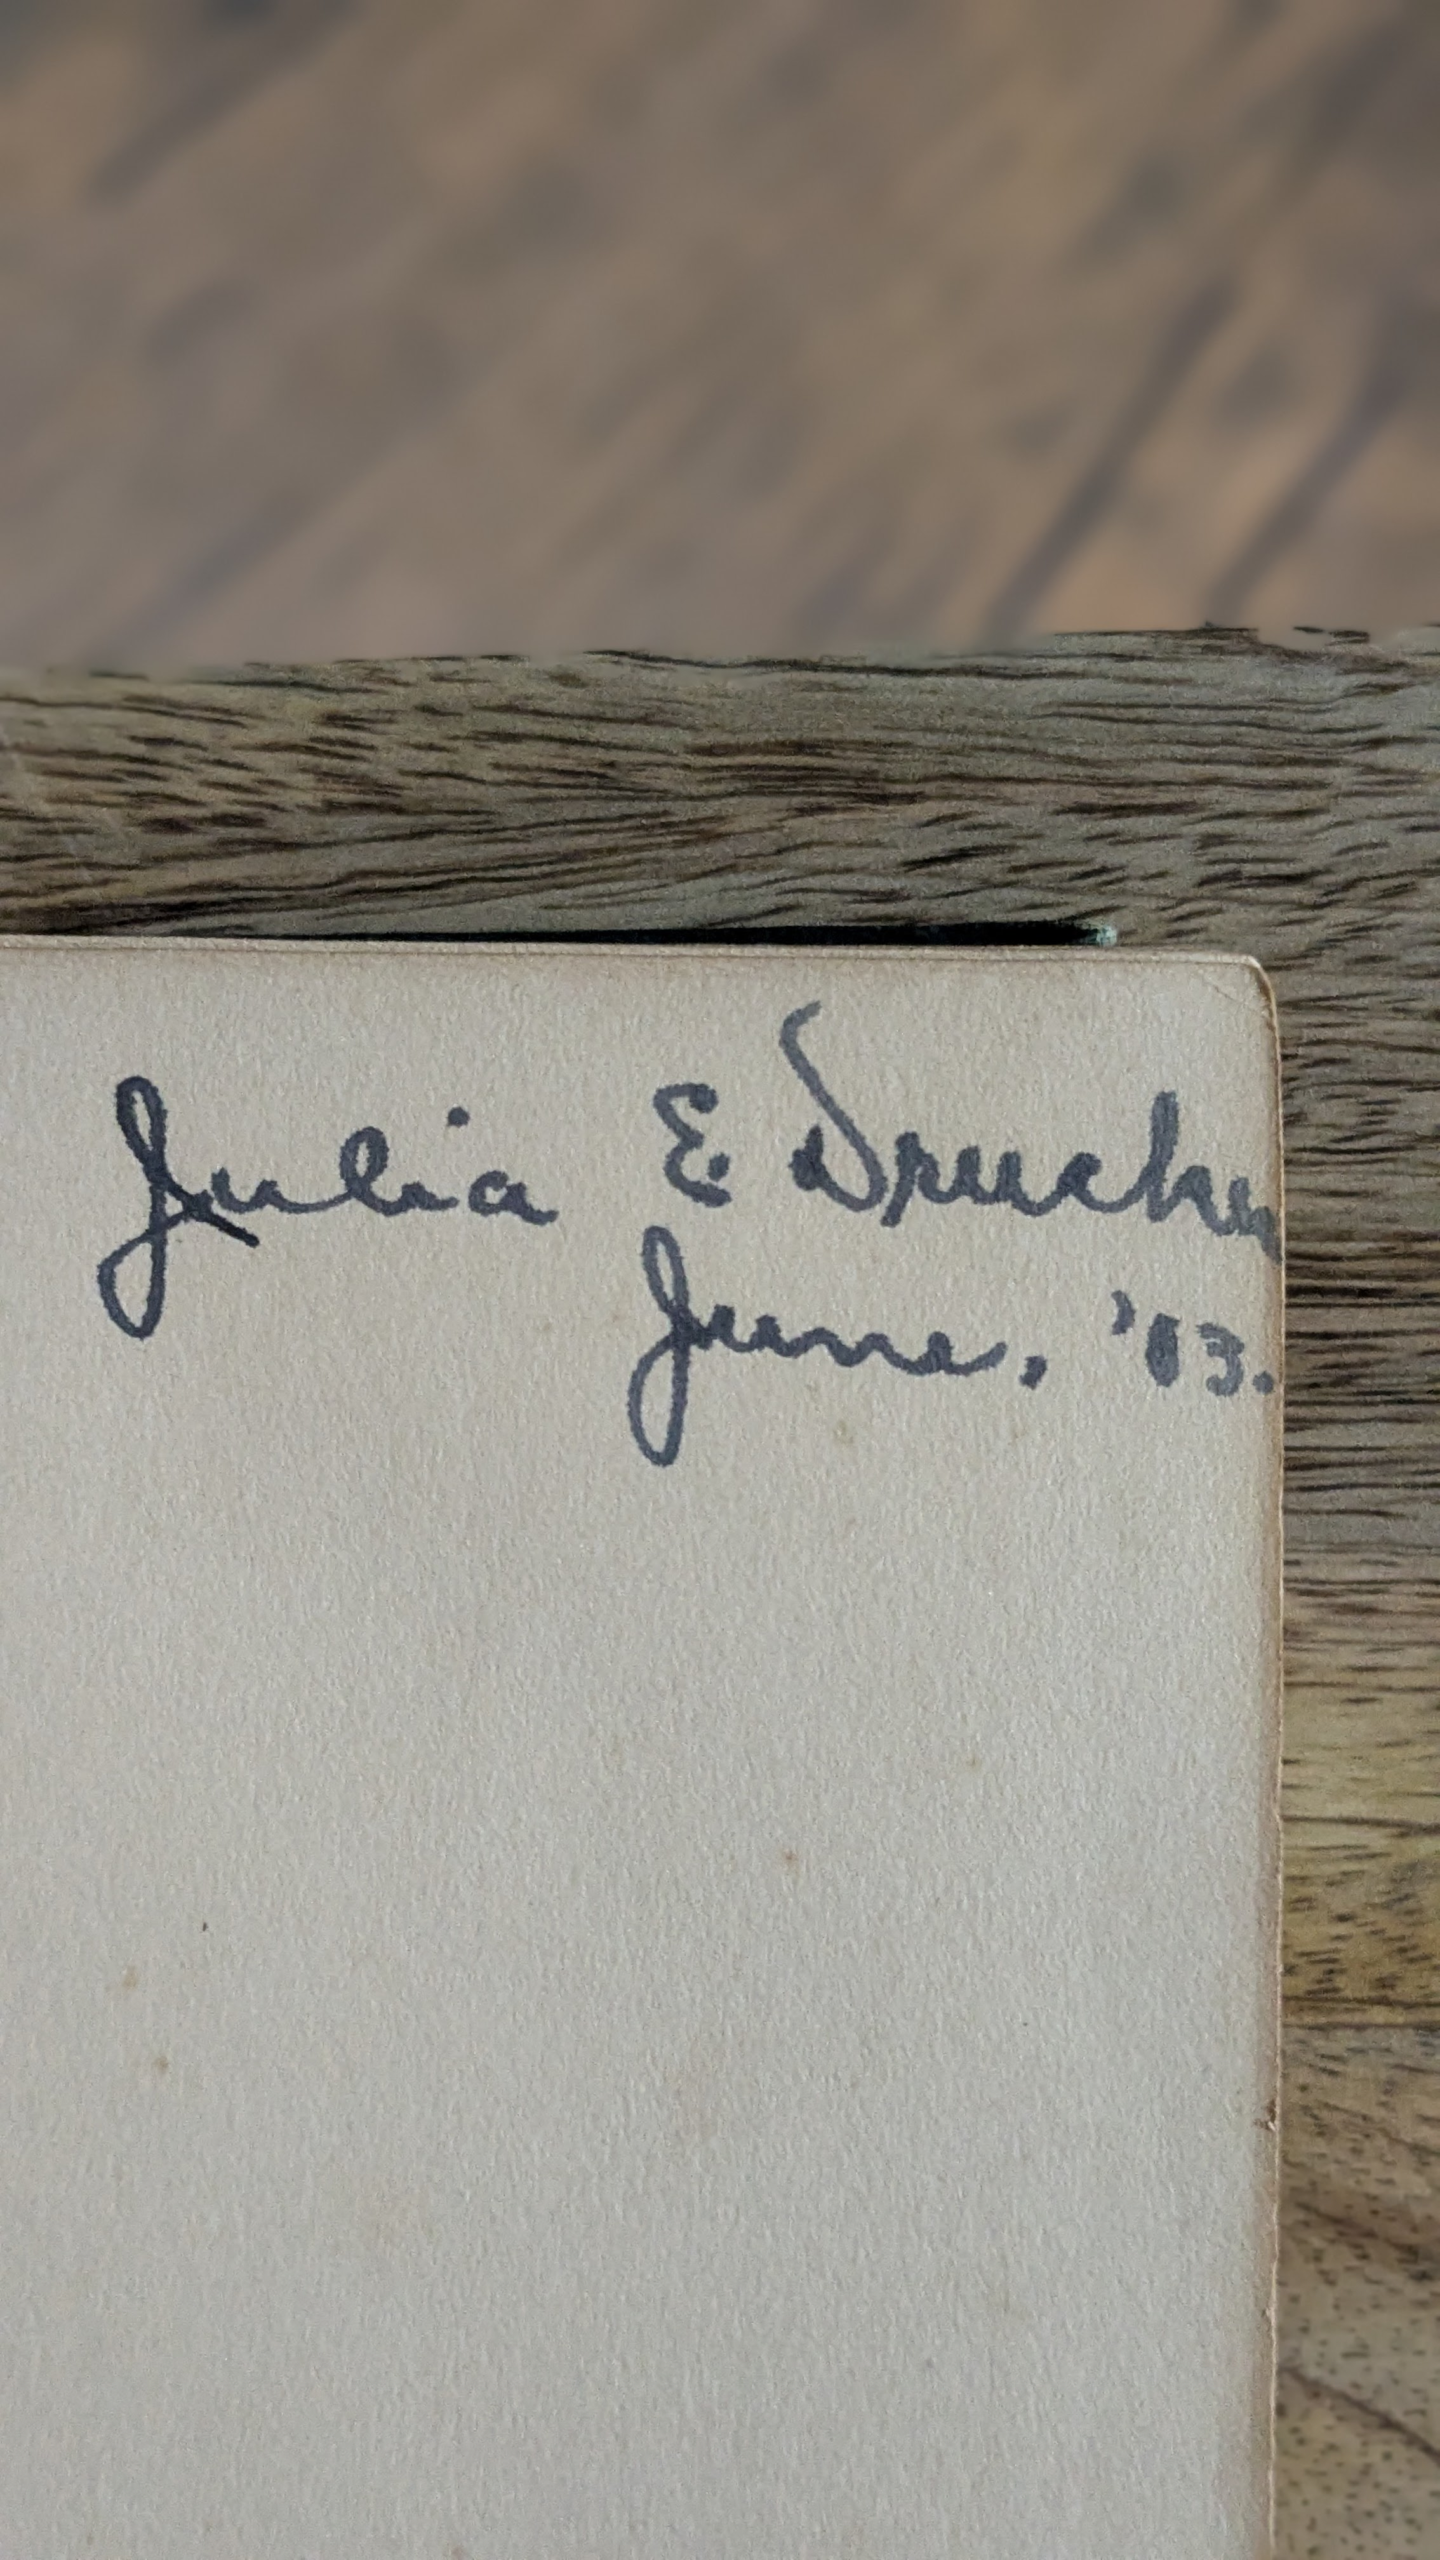 Julia E. Drucker
June, '03.